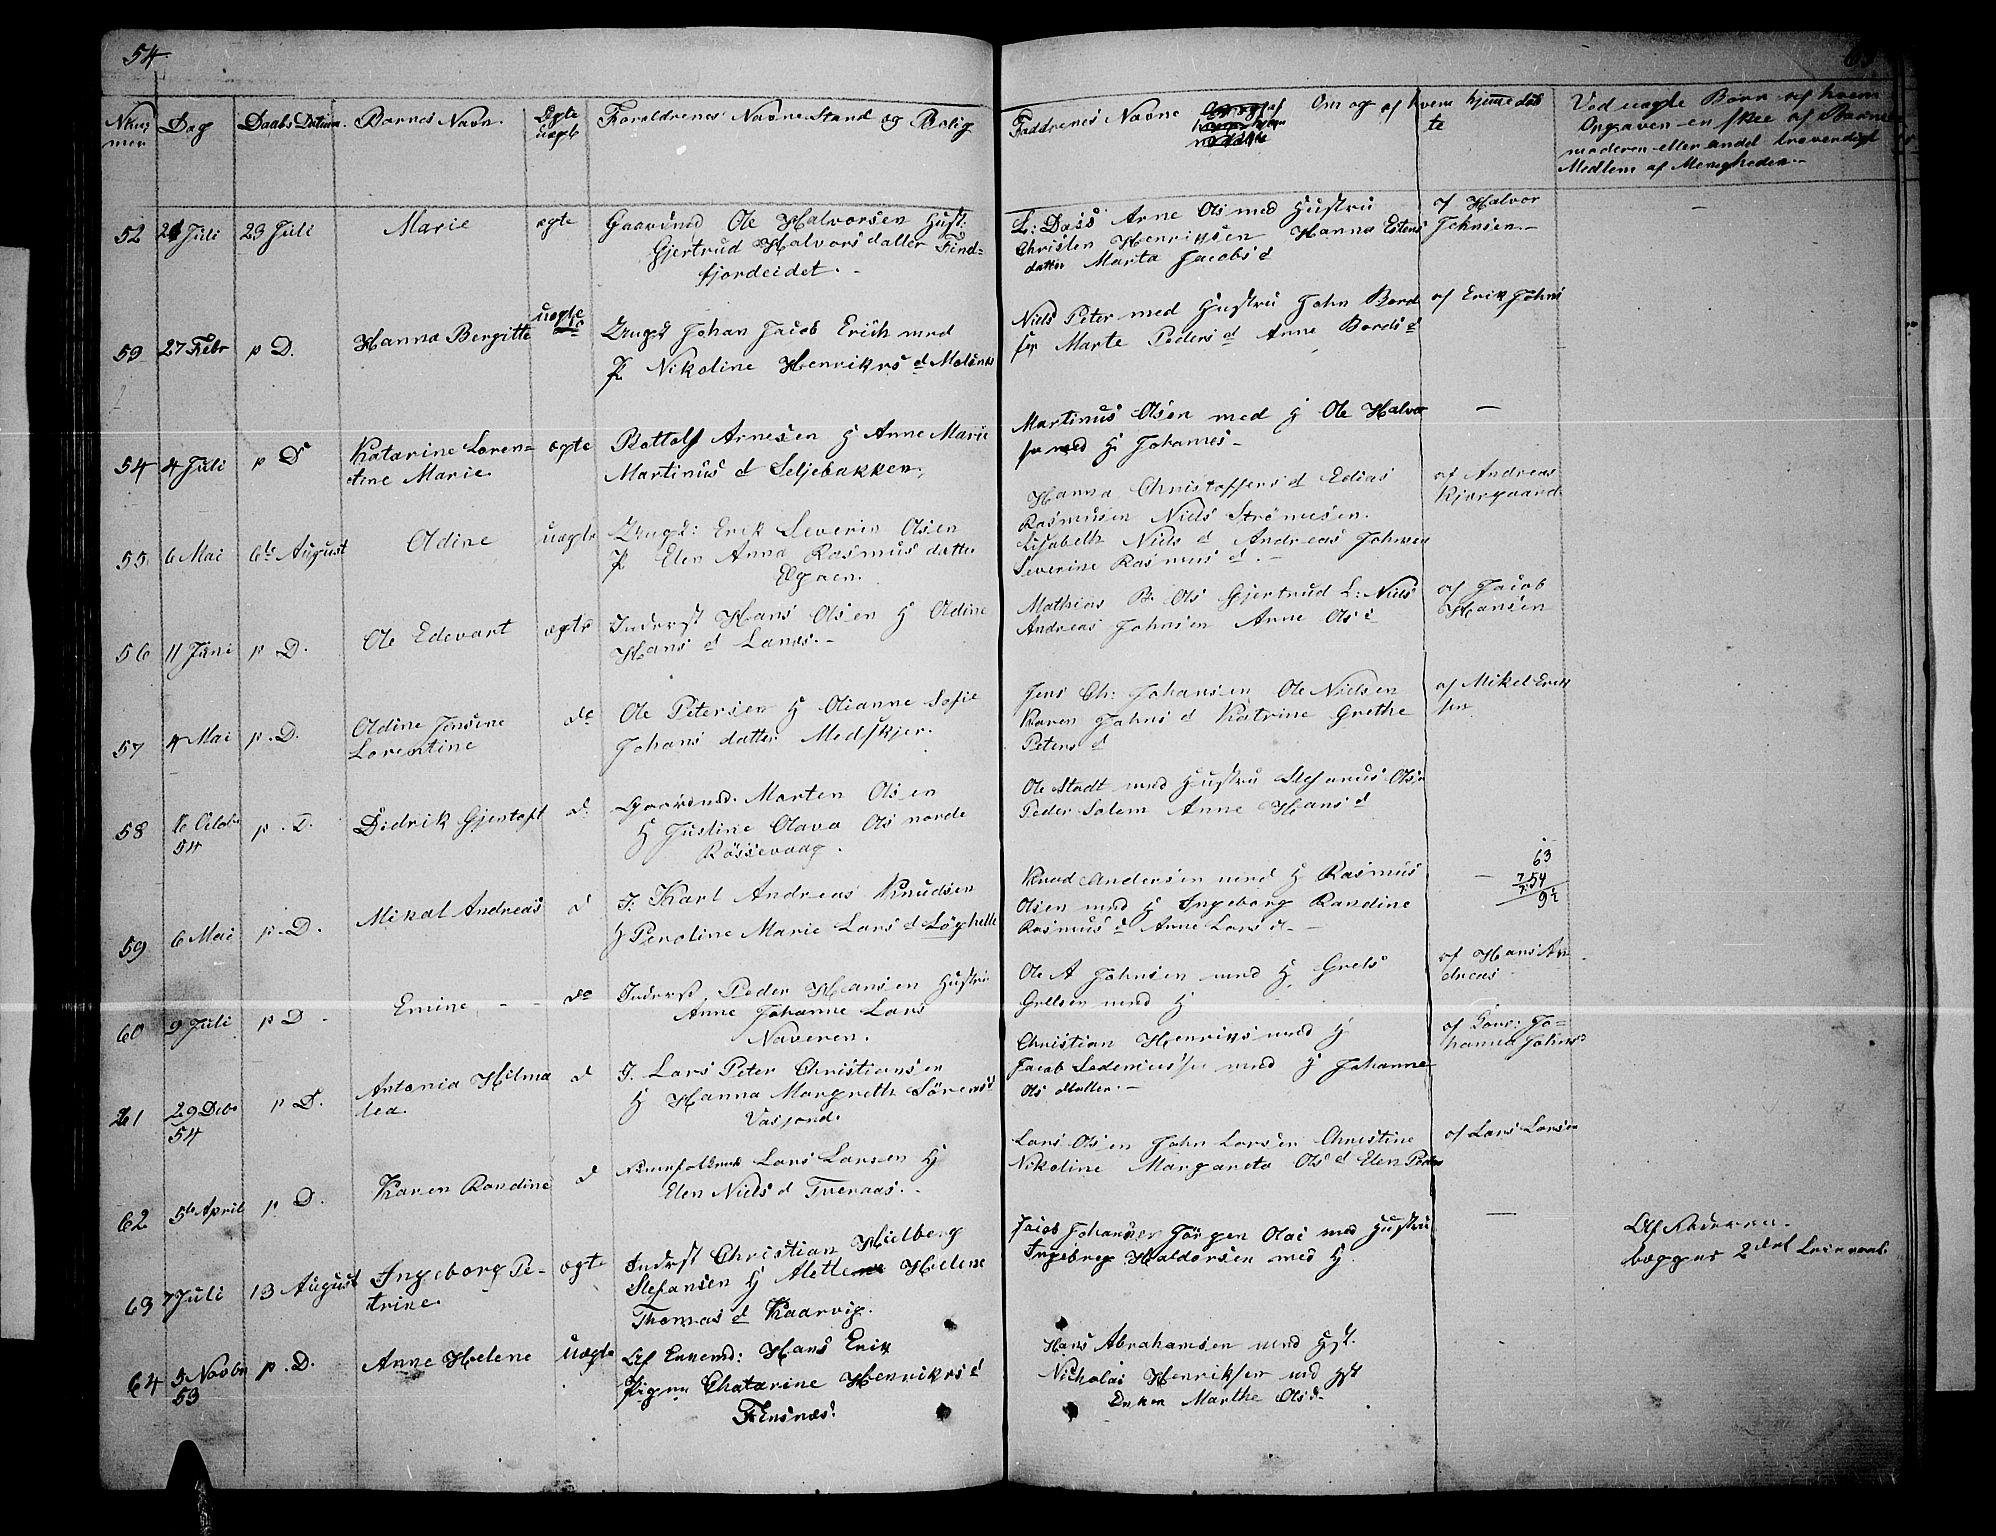 54
Num
mer
Dag
Daabs Datum.
Barnes Navn.
Ægte
uægte
Foraldrenes Navne Stand og Bolig
Faddrenes Navne
Om og af hvem hjemmedøb
te
Ved uægte Børn af hvem
Ongaven en skee af Barne
moderen eller andet troverdigt
Medlem af Menigheden.-
52 21 Juli 23 Juli Marie ægte Gaardmd Ole Halvorsen Hust:
Gjertrud Halvorsdatter Find=
fjordeidet.-
L: Dass Arne Ols med Hustru
Christen Henriksen Hanna Estens
datter Marta Jacobs d
af Halvor
Johnsen.-
53 27 Febr p D. Hanna Bergitte uægte Ungk Johan Jacob Erich med
P Nikoline Henriks d Molsnes
Niels Peter med Hustru John Bord
sen Marte Peders d Anne Bords d
af Erik Johns
54 4 Juli p D Katarine Loren=
tine Marie
ægte Bottolf Arnesen H Anne Marie
Martinus d Seljebakken,
Martinus Olsen med H Ole Halvor
sen med H Johannes -
-
55 6 Mai 6te August Oldine uægte Ungk: Erik Severin Olsen
P Elen Anna Rasmus datter
Elgaen.
Hanna Christoffers d Edias
Rasmusen Niels Strømesen.
Lisabeth Niels d Andreas Johnsen
Severine Rasmus d.-
af Andreas
Kjærgaard
56 11 Juni p D. Ole Edevart ægte Inderst Hans Olsen H Oldine
Hans d Lanæs.-
Mathias B: Ols Gjertrud L: Niels
Andreas Johnsen Anne Ols d
af Jacob
Hansen
57 4 Mai p. D. Oldine Jensine
Lorentine
do Ole Petersen H Olianne Sofie
Johans datter Medskjer.
Jens Ch: Johansen Ole Nielsen
Karen Johns d Katrine Grethe
Peters d
af Mikel Erik
sen
58 16 Octob
54
p. D. Didrik Gjentoft d. Gaardmd. Morten Olsen
H Justine Olava Ols nordre
Røssevaag.
Ole Stadt med Hustru Stefanus Olsen
Peder Solem Anne Hans d
59 6 Mai p. D. Mikal Andreas d I: Karl Andreas Knudsen
H Peroline Marie Lars d Løghelle
Knud Andersen med H Rasmus
Olsen med H Ingeborg Randine
Rasmus d Anne Lars d.-
-
63
7 54
9½
60 9 Juli p D - Emine - - do Inderst Peder Hansen Hustru
Anne Johanne Lars
Naveren.
Ole A Johnsen med H, Grels
Grelsen med H
af Hans An
dreas
61 29 Debr
54
p D. Antonia Hilma
lea.
d I. Lars Peter Christiansen
H Hanna Margreth Sørens d
Vasjord.
Christian Henriks med H
Jacob Sedeniussen med H Johanne
Ols datter.-
af Gour: Jo=
hanna Johns d
62 5te April p D. Karen Randine d Lars Larsen H
Elen Niels d Tvenaas.-
Lars Olsen John Larsen Christine
Nikoline Margareta Ols d Elen Peders
af Lars Larsen
63 7 Juli 13 August Ingeborg Pe-
trine
ægte Inderst Christian Hielberg
Stefansen H Alette Helene
Thomas d Kaarvig.
Jacob Johanner Jørgen Olai med Hustru
Ingebreg Haldorsen med H
-
begges 2det Leiermaal.
64 5 Novbr
53
p. D. Anne Helene uægte Af Enkemd: Hans Erik
Pigen Chatarine Henriks d
Finsnæs.
Hans Abrahamsen med Hst.
Nicholai Henriksen med Hst
Enken Marthe Olsd.